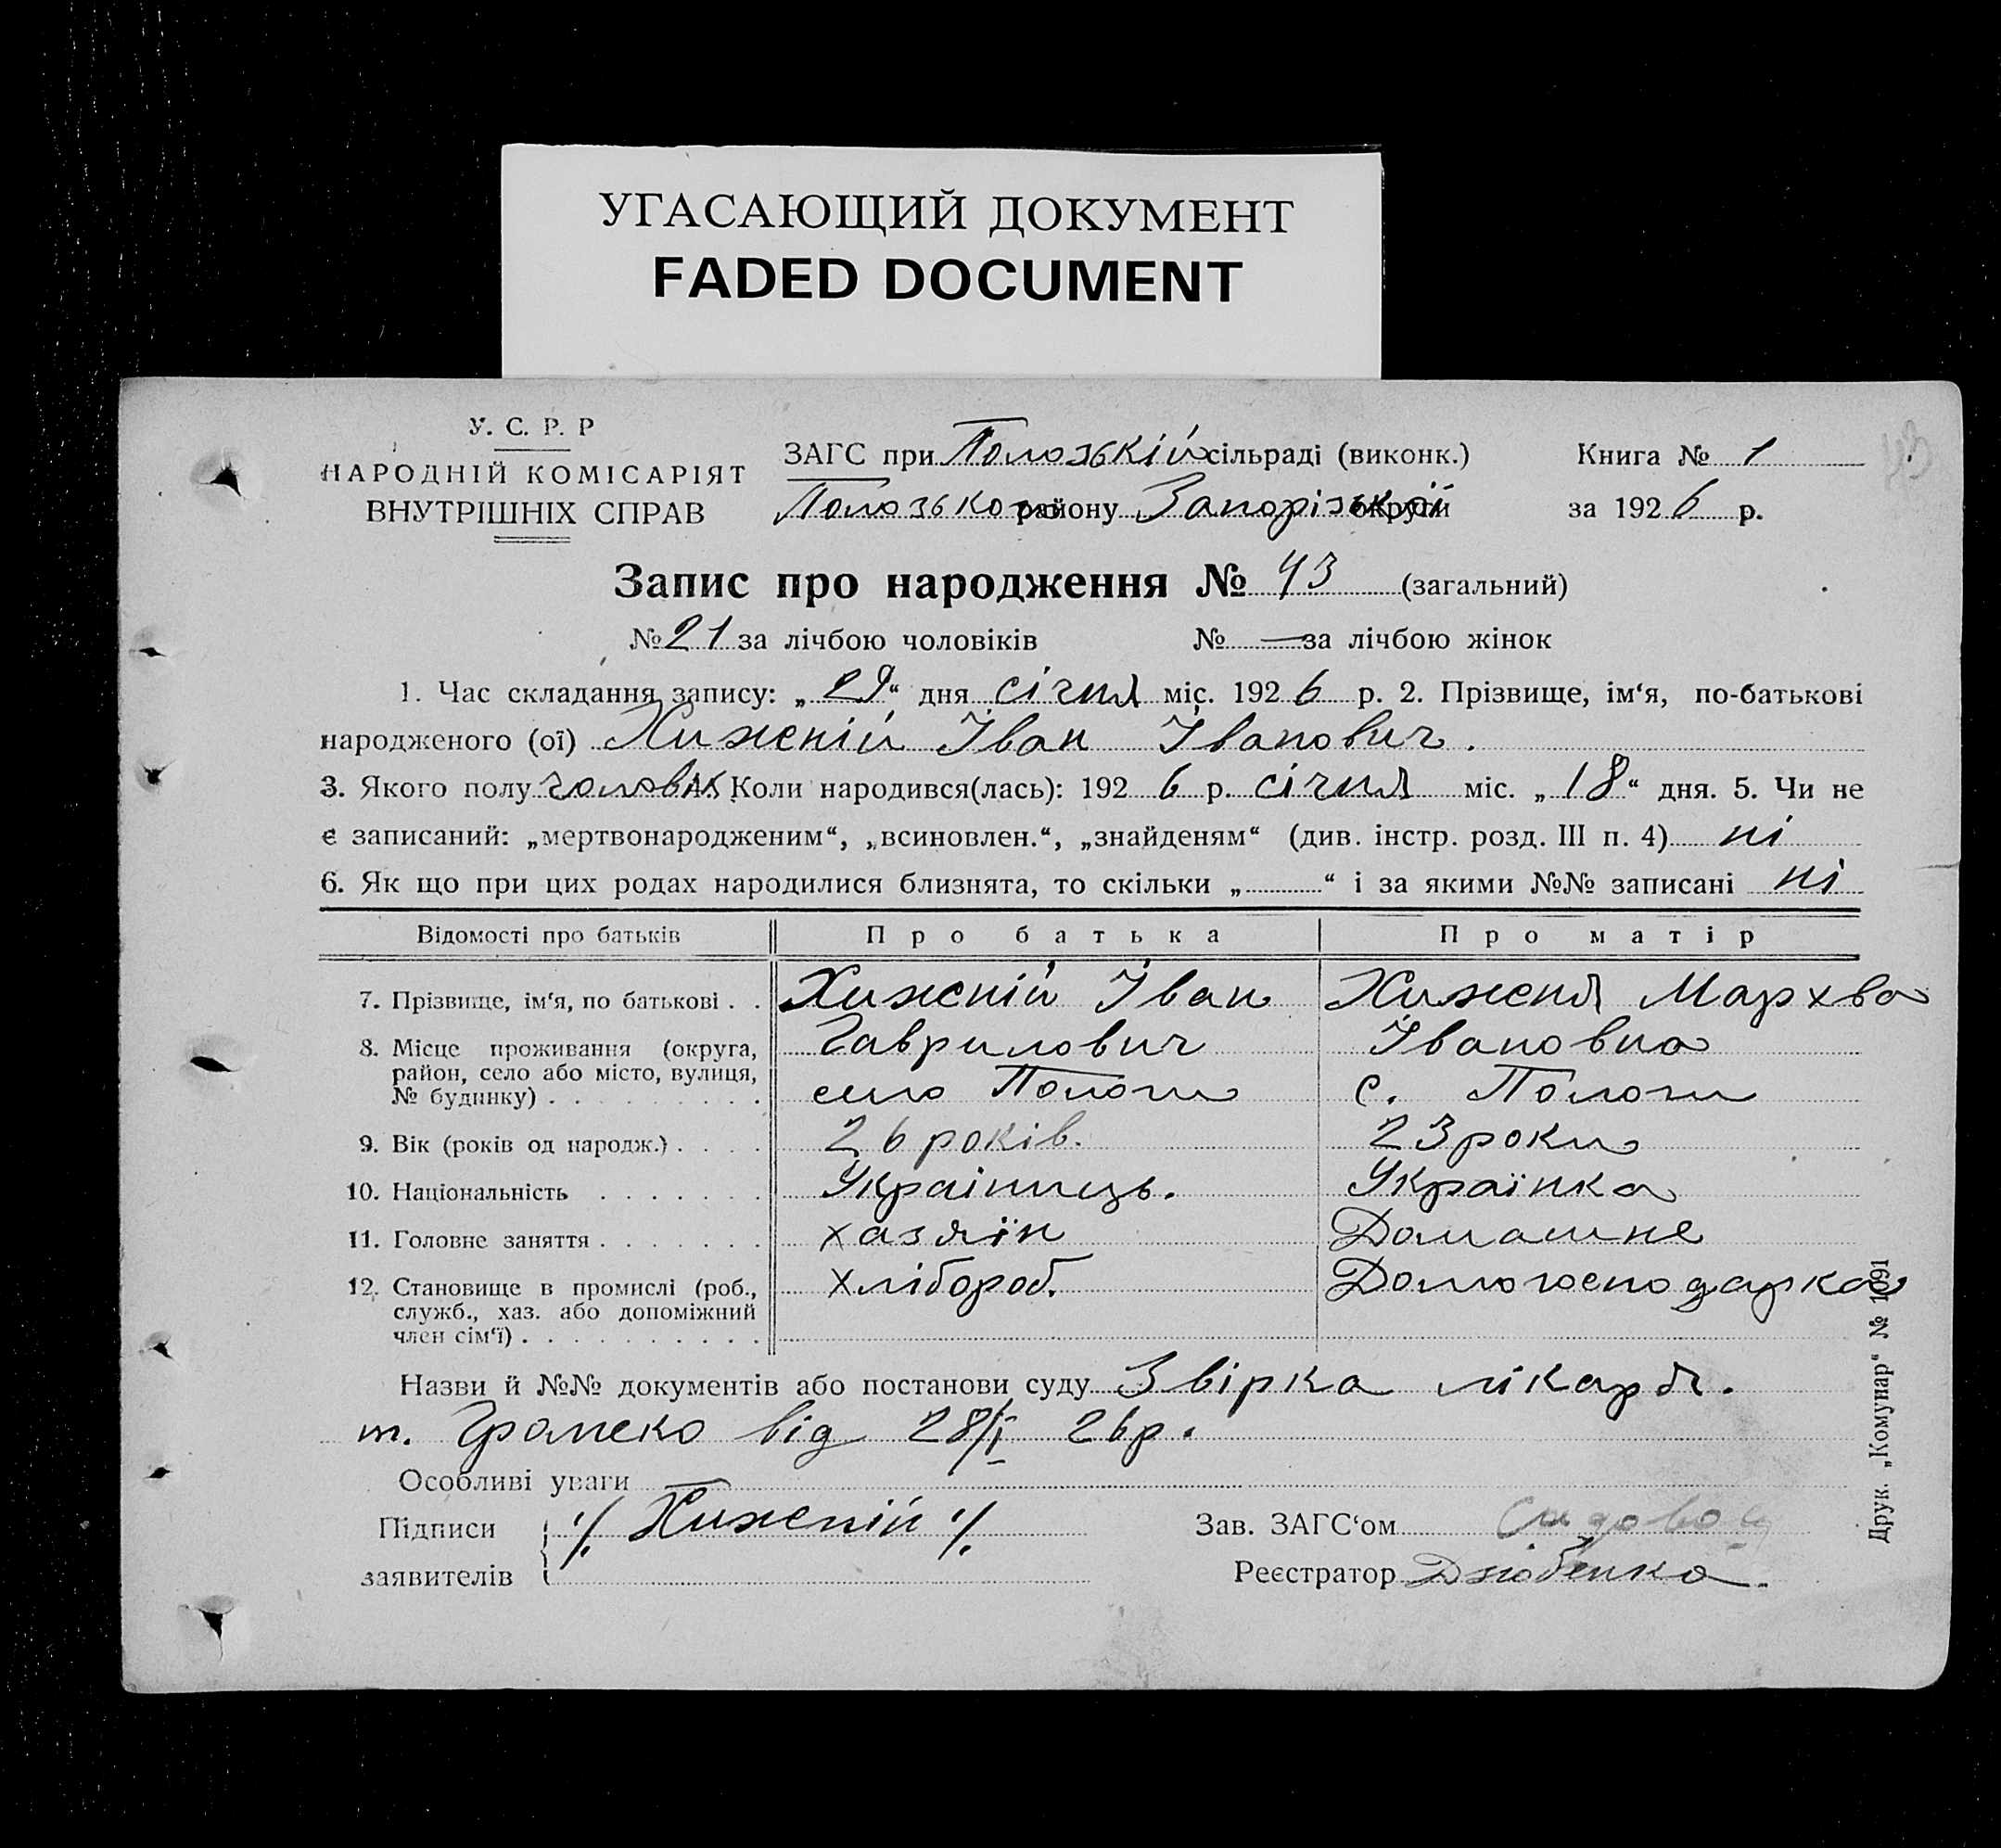 УГАСАЮЩИЙ ДОКУМЕНТ
FADED DOCUMENT
У. С. Р. Р
НАРОДНІЙ КОМІСАРІЯТ
ВНУТРІШНІХ СПРАВ
ЗАГС при Полозькій сільраді (виконк.)
Полозького району Запорізької округи
Книга № 1
за 1926 р.
43
Запис про народження № 43 (загальний)
№ 21 за лічбою чоловіків № — за лічбою жінок
1. Час складання запису: „29“ дня січня міс. 1926 р. 2. Прізвище, ім‘я, по-батькові
народженого (ої) Хижній Іван Іванович.
3. Якого полу чоловік 4. Коли народився(лась): 1926 р. січня міс. „18“ дня. 5. Чи не
є записаний: „мертвонародженим“, „всиновлен.“, „знайденям“ (див. інстр. розд. III п. 4) ні
6. Як що при цих родах народилися близнята, то скільки „ “ і за якими №№ записані ні
Відомості про батьків Про батька Про матір
7. Прізвище, ім‘я, по батькові . . Хижений Іван Хиженя Мархва
8. Місце проживання (округа, Гаврилович Івановна
район, село або місто, вулиця,
№ будинку) . . . . . . . . . село Пологи с. Пологи
9. Вік (років од народж.) . . . . 26 років. 23 роки
10. Національність . . . . . . . Украінець. Українка
11. Головне заняття . . . . . . . хазяїн Домашне
12. Становище в промислі (роб., хлібороб. Домогосподарка
служб., хаз. або допоміжний
член сім‘ї) . . . . . . . . . .
Назви й №№ документів або постанови суду Звірка лікаря.
т. від 28/I 26р.
Особливі уваги
Підписи /. Хижений /.
заявителів
Зав. ЗАГС‘ом
Реєстратор Дзюбенко.
Друк. „Комунар“ № 1091